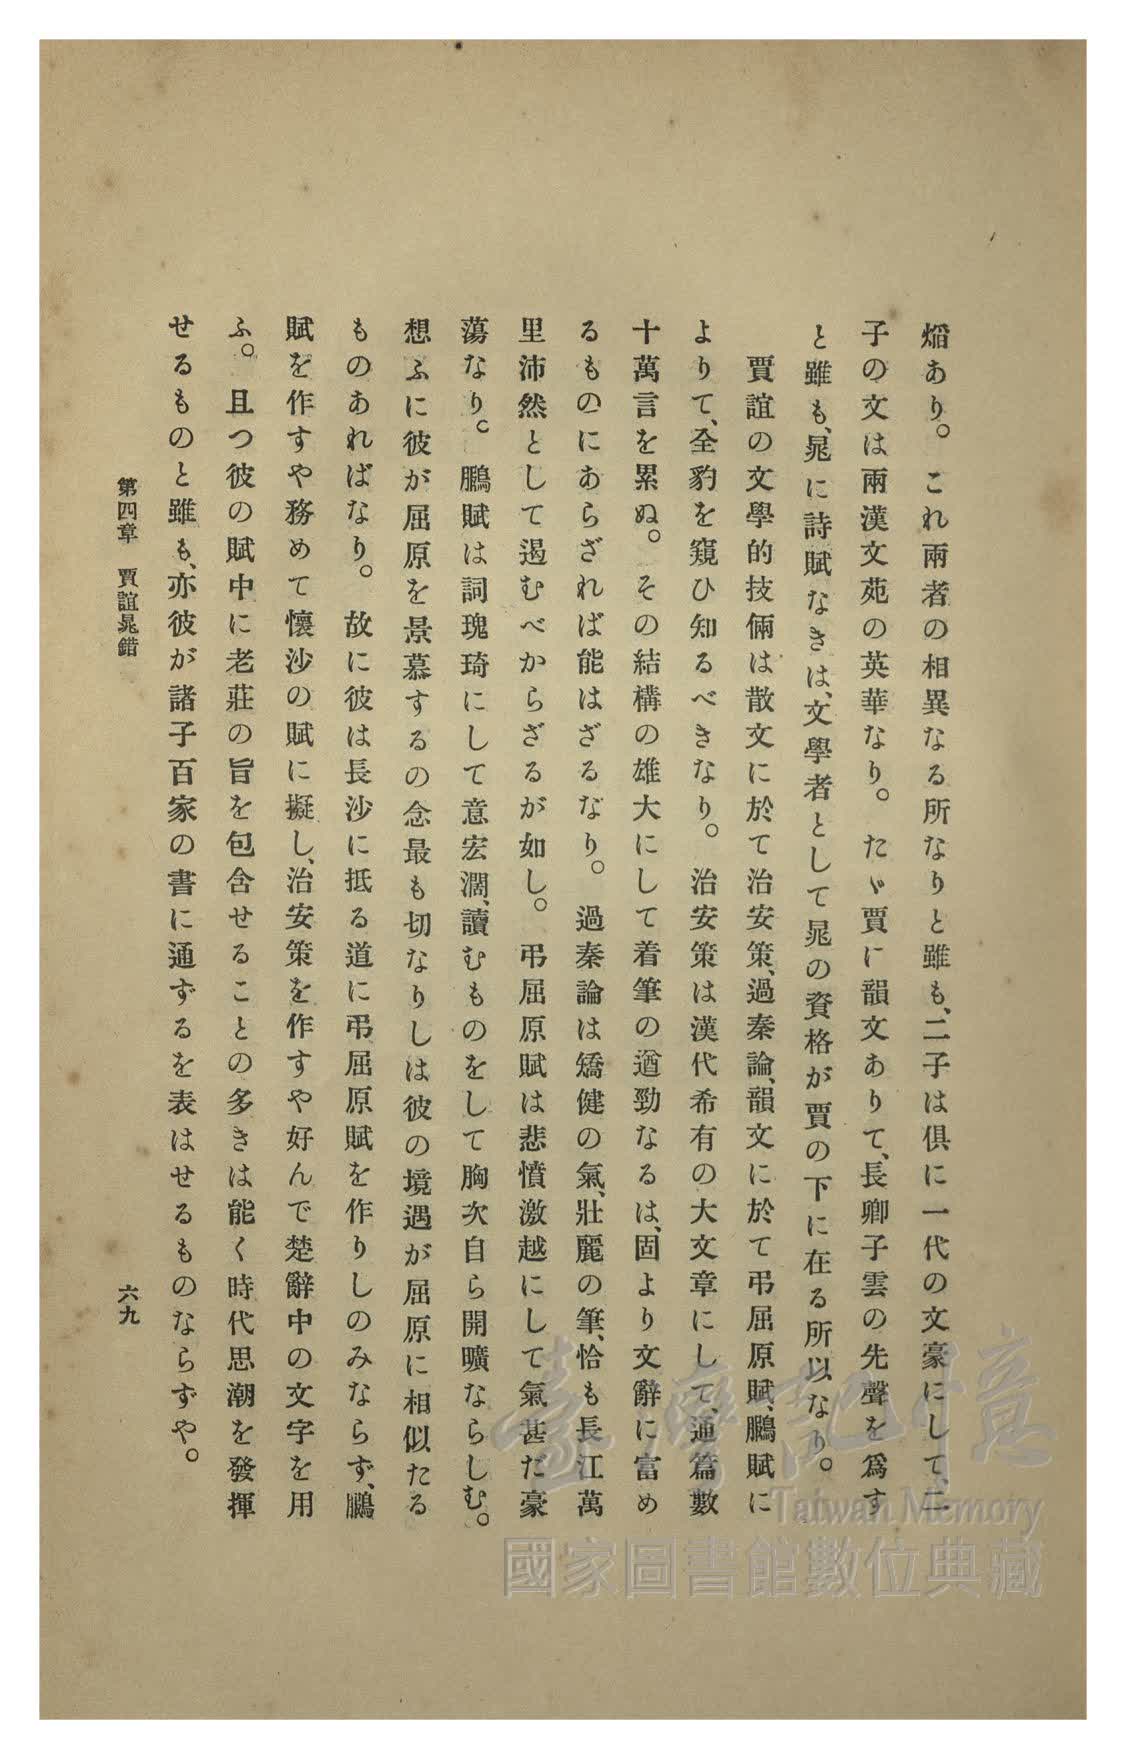 焰あり。これ兩者の相異なる所なりと雖も、二子は俱に一代の文豪にして、二
子の文は兩漢文苑の英華なり。たゞ賈に韻文ありて、長卿子雲の先聲を爲す
と雖も、晁に詩賦なきは、文學者として晁の資格が賈の下に在る所以なり。
賈誼の文學的技倆は散文に於て治安策、過秦論、韻文に於て弔屈原賦、鵩賦に
よりて、全豹を窺ひ知るべきなり。治安策は漢代希有の大文章にして、通篇數
十萬言を累ぬ。その結構の雄大にして着筆の遒勁なるは、固より文辭に富め
るものにあらざれば能はざるなり。過秦論は矯健の氣、壯麗の筆、恰も長江萬
里沛然として遏むべからざるが如し。弔屈原賦は悲憤激越にして氣甚だ豪
蕩なり。鵩賦は詞瑰琦にして意宏濶、讀むものをして胸次自ら開曠ならしむ。
想ふに彼が屈原を景慕するの念最も切なりしは彼の境遇が屈原に相似たる
ものあればなり。故に彼は長沙に抵る道に弔屈原賦を作りしのみならず、鵩
賦を作すや務めて懷沙の賦に擬し、治安策を作すや好んで楚辭中の文字を用
ふ。且つ彼の賦中に老莊の旨を包含せることの多きは能く時代思潮を發揮
せるものと雖も、亦彼が諸子百家の書に通ずるを表はせるものならずや。
第四章 賈誼晁錯
六九
臺灣記憶
Taiwan Memory
國家圖書館數位典藏